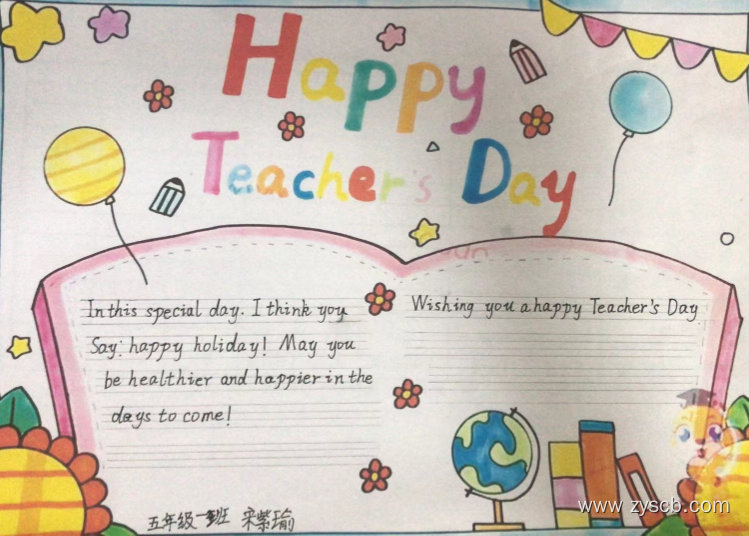 Happy
Teacher's Day
In this special day. I think you
Say: happy holiday! May you
be healthier and happier in the
days to come!
Wishing you a happy Teacher's Day
五年级一班 宋紫瑜
www.zyscb.com